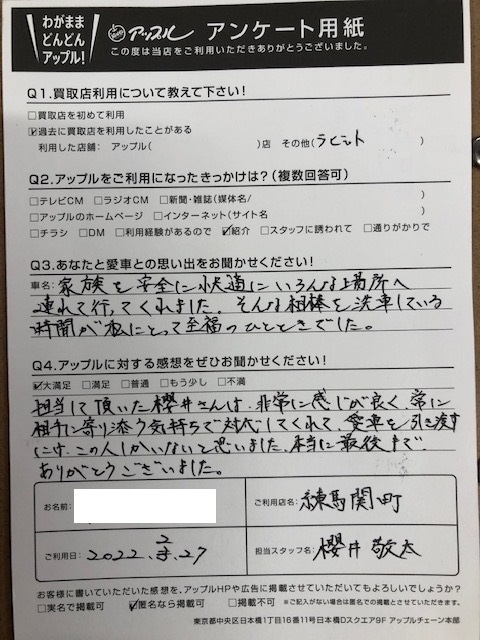 わがまま
どんどん
アップル!
アップル アンケート用紙
この度は当店をご利用いただきありがとうございました。
Q1.買取店利用について教えて下さい!
□買取店を初めて利用
☑過去に買取店を利用したことがある
利用した店舗: アップル( )店 その他(ラビット )
Q2.アップルをご利用になったきっかけは?(複数回答可)
□テレビCM □ラジオCM □新聞・雑誌(媒体名/ )
□アップルのホームページ □インターネット(サイト名 )
□チラシ □DM □利用経験があるので ☑紹介 □スタッフに誘われて □通りがかりで
Q3.あなたと愛車との思い出をお聞かせください!
車名: 家族を安全に快適にいろんな場所へ
連れて行ってくれました。そんな相棒を洗車している
時間が私にとって至福のひとときでした。
Q4.アップルに対する感想をぜひお聞かせください!
☑大満足 □満足 □普通 □もう少し □不満
担当して頂いた櫻井さんは、非常に感じが良く、常に
相手に寄り添う気持ちで対応してくれて、愛車を引き渡す
には、この人しかいないと思いました。本当に最後まで
ありがとうございました。
お名前:
ご利用店名: 練馬関町
ご利用日: 2022.2.27
担当スタッフ名: 櫻井敬太
お客様に書いていただいた感想を、アップルHPや広告に掲載させていただいてもよろしいでしょうか?
□実名で掲載可 ☑匿名なら掲載可 □掲載不可 ※ご記入がない場合は匿名での掲載とさせていただきます。
東京都中央区日本橋1丁目16番11号日本橋Dスクエア9F アップルチェーン本部